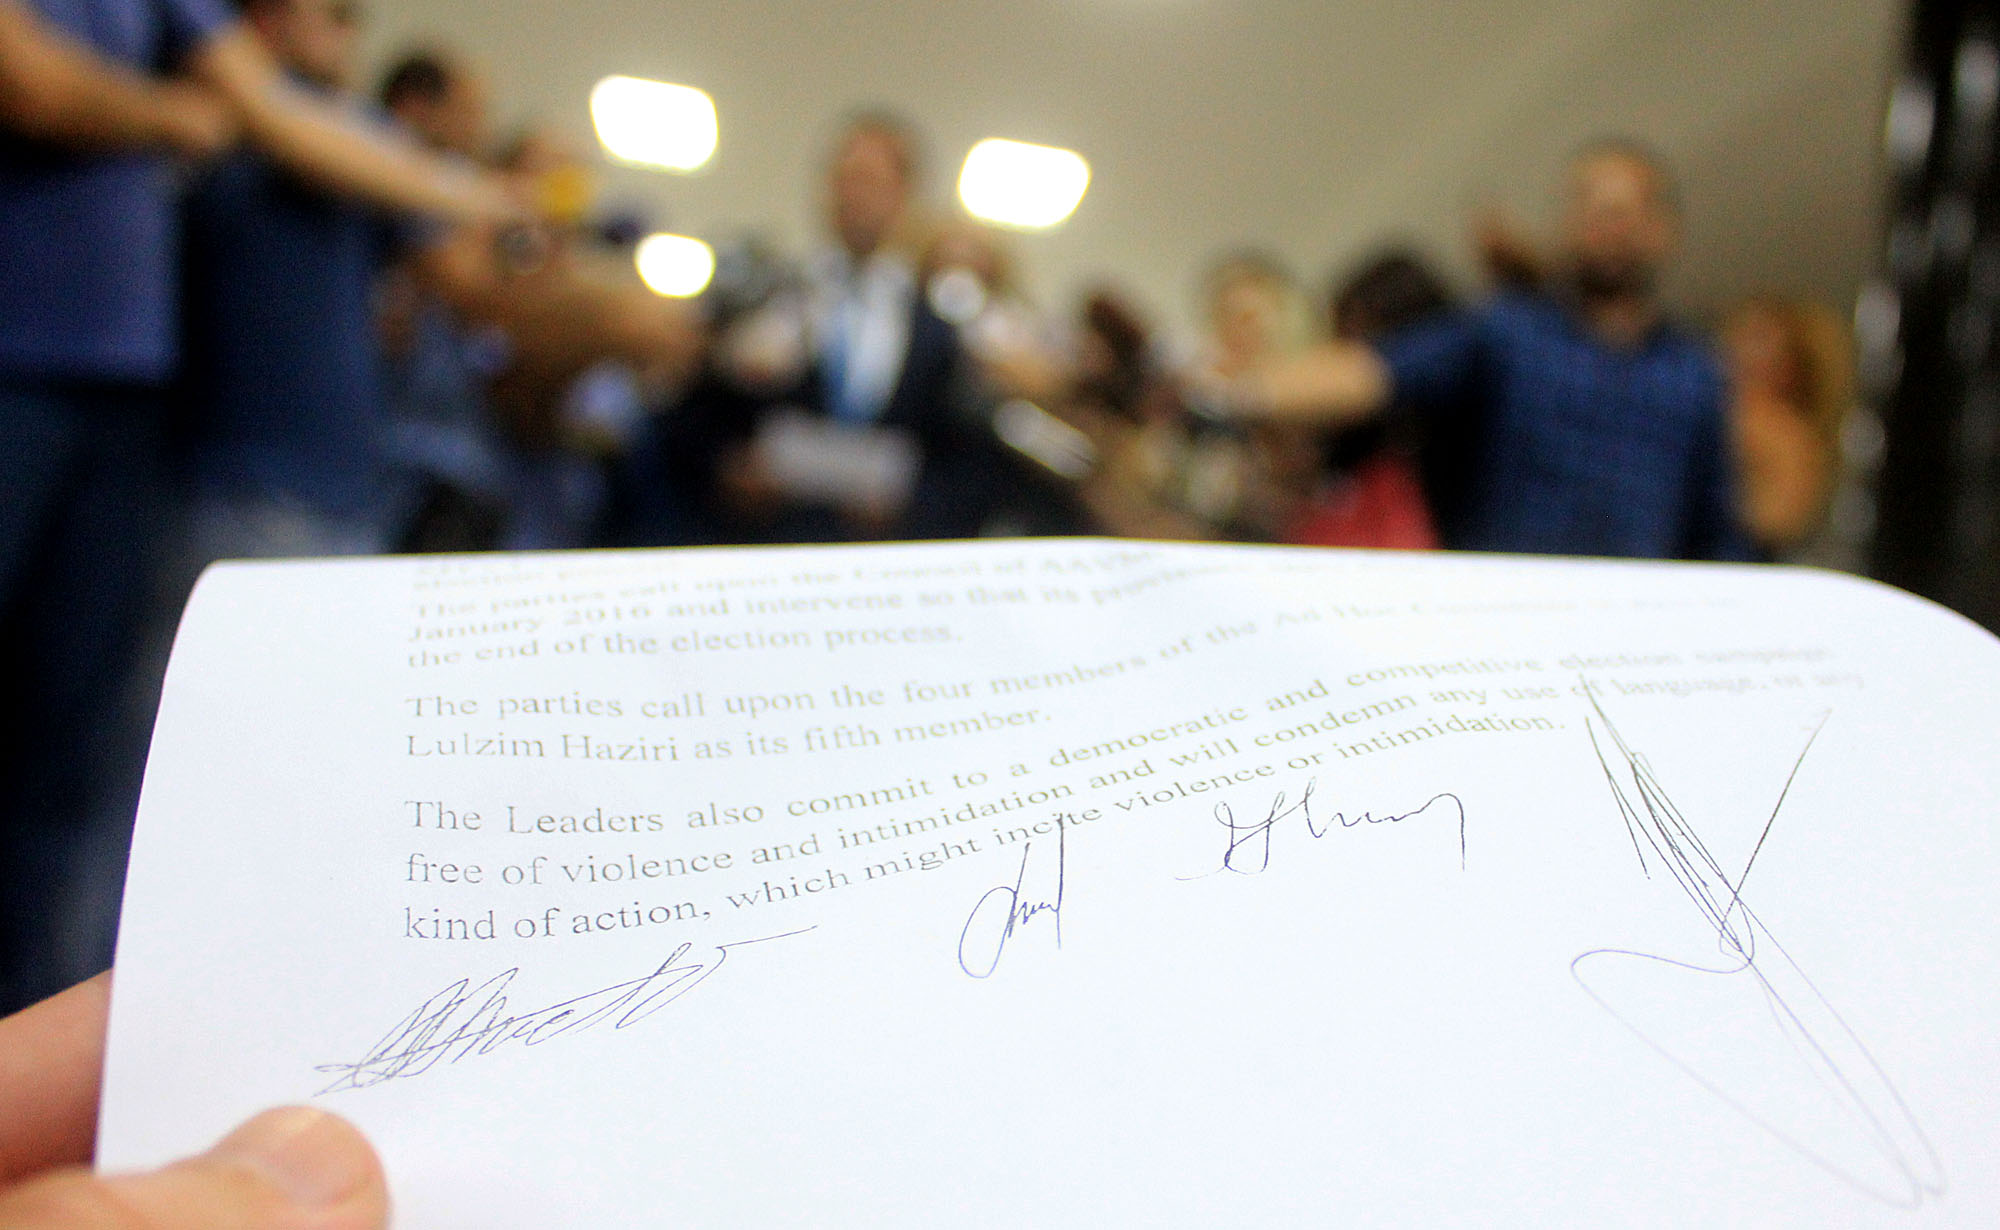 The parties call upon the Council of
January 2016 and intervene so that its
the end of the election process.
The parties call upon the four members of the Ad Hoc
Lulzim Haziri as its fifth member.
The Leaders also commit to a democratic and competitive election campaign
free of violence and intimidation and will condemn any use of language, or any
kind of action, which might incite violence or intimidation.